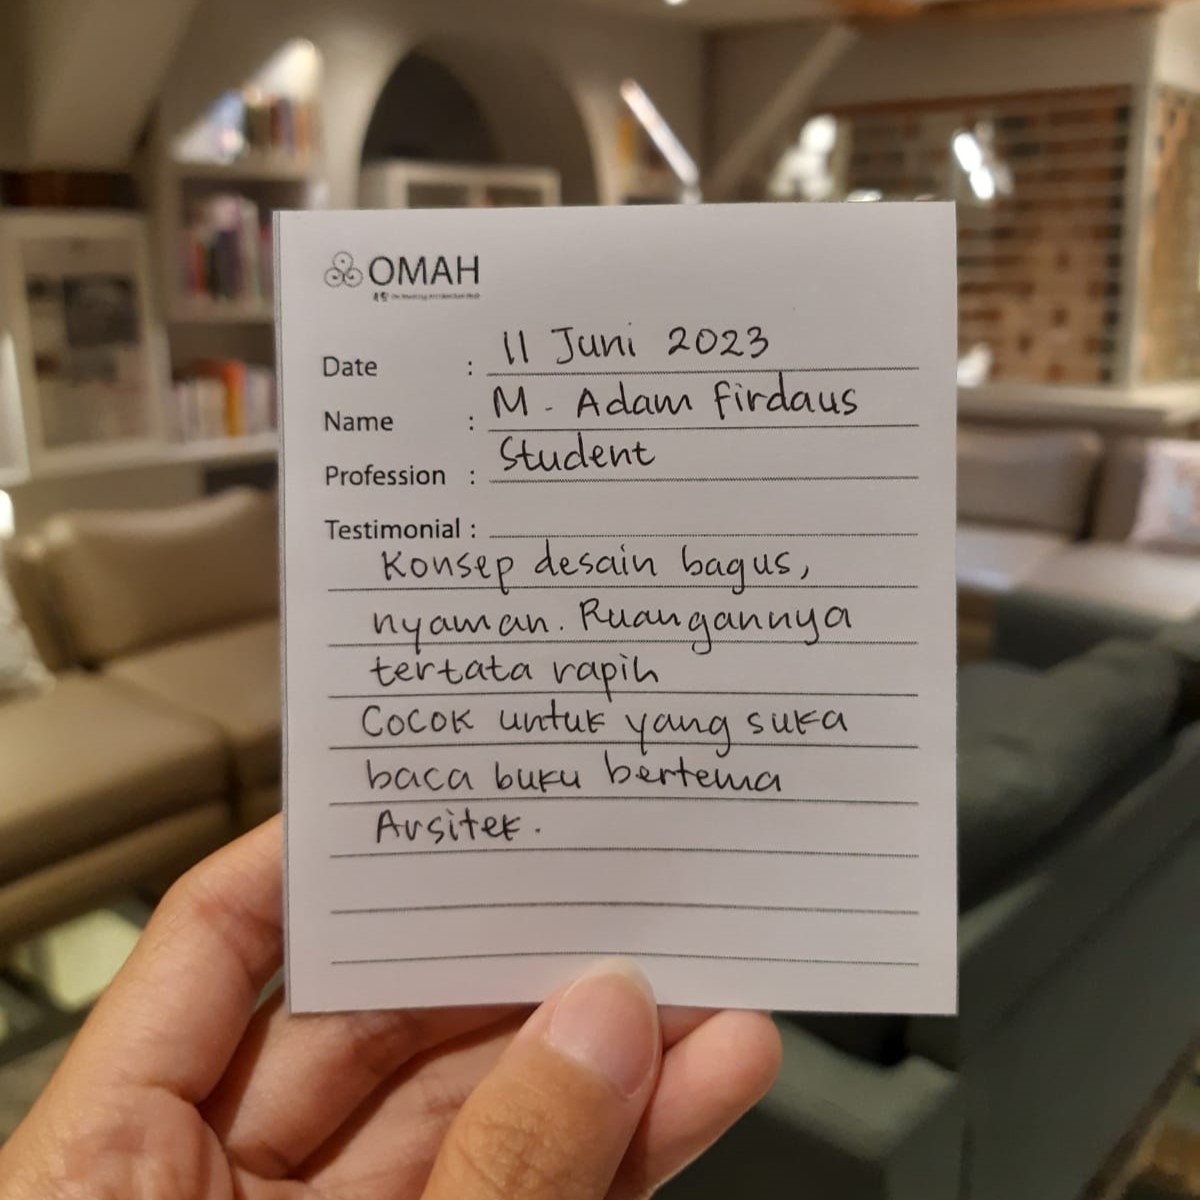 OMAH
Date : 11 Juni 2023
Name : M. Adam Firdaus
Profession : Student
Testimonial :
Konsep desain bagus,
nyaman. Ruangannya
tertata rapih
Cocok untuk yang suka
baca buku bertema
Arsitek.